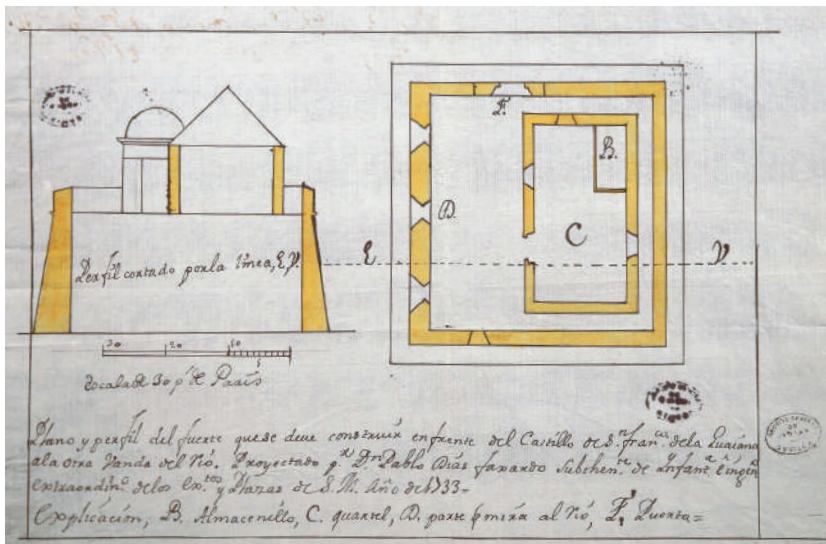 F.
B.
D.
C
E
V
Perfil cortado por la línea, E, V.
30 20 10
5
Escala de 30 p.s de París
Plano y perfil del fuerte que se deve construir enfrente del Castillo de S.n fran.co de la Guaiana
a la otra Vanda del Rio. Proyectado p.r D.n Pablo Dias faxardo Subthen.te de Infant.a e ingen.o
extraordin.o de los Ex.tos y Plazas de S. M. Año de 1733-
Explicación, B. Almacenillo, C. quartel, D. parte q mira al Rió, F. Puerta=